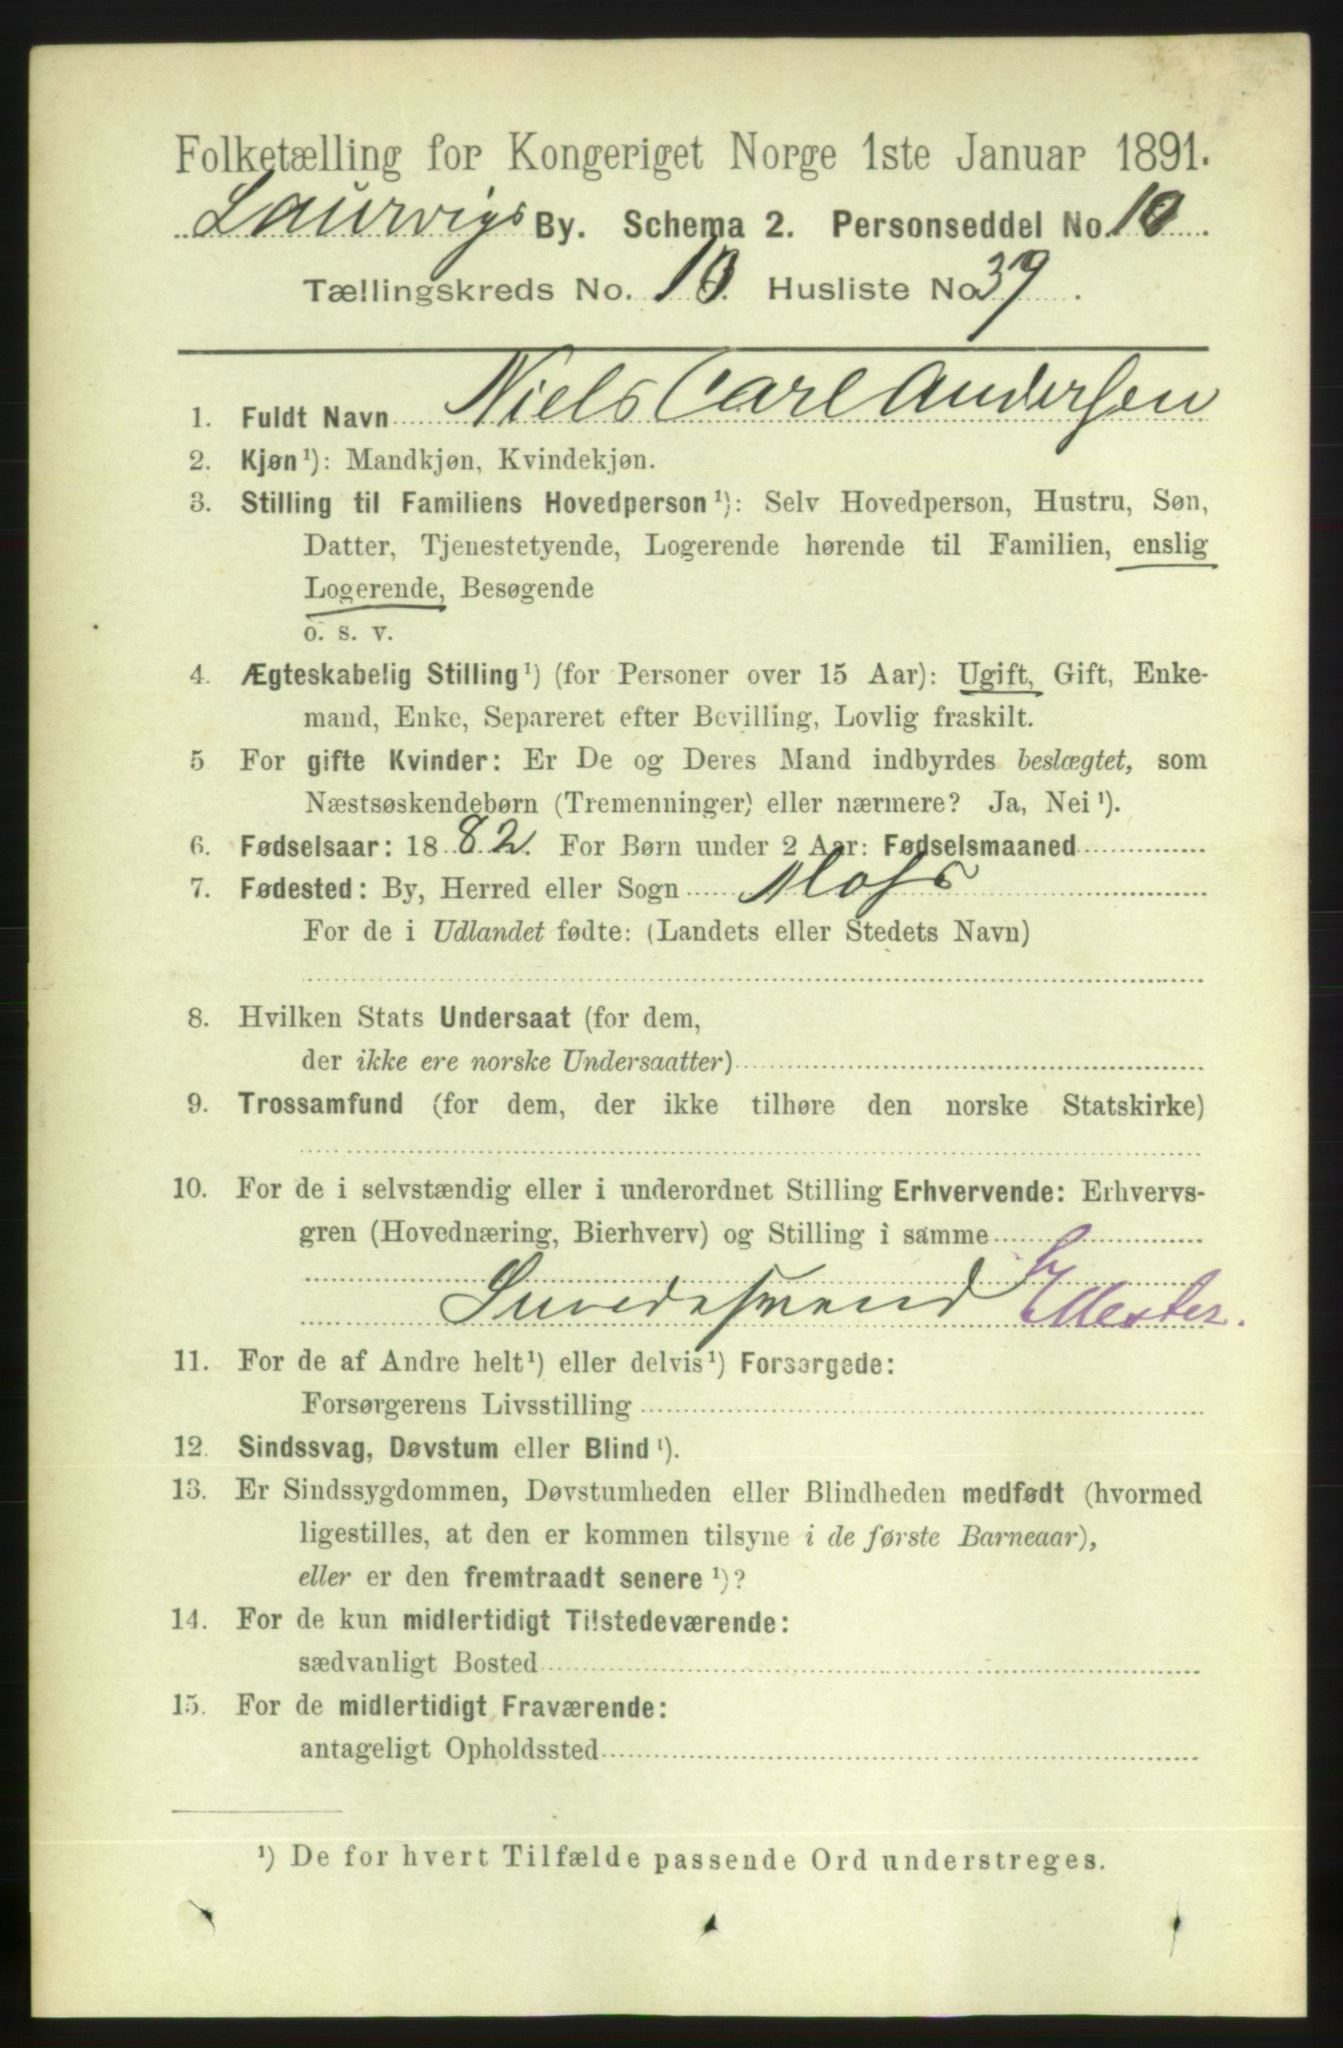 Folketælling for Kongeriget Norge 1ste Januar 1891.
Laurvigs By. Schema 2. Personseddel No. 10
Tællingskreds No. 10. Husliste No 39.
1. Fuldt Navn Niels Carl Andersen
2. Kjøn¹): Mandkjøn, Kvindekjøn.
3. Stilling til Familiens Hovedperson¹): Selv Hovedperson, Hustru, Søn,
Datter, Tjenestetyende, Logerende hørende til Familien, enslig
Logerende, Besøgende
o. s. v.
4. Ægteskabelig Stilling¹) (for Personer over 15 Aar): Ugift, Gift, Enke-
mand, Enke, Separeret efter Bevilling, Lovlig fraskilt.
5 For gifte Kvinder: Er De og Deres Mand indbyrdes beslægtet, som
Næstsøskendebørn (Tremenninger) eller nærmere? Ja, Nei¹).
6. Fødselsaar: 1882. For Børn under 2 Aar: Fødselsmaaned
7. Fødested: By, Herred eller Sogn Moss
For de i Udlandet fødte: (Landets eller Stedets Navn)
8. Hvilken Stats Undersaat (for dem,
der ikke ere norske Undersaatter)
9. Trossamfund (for dem, der ikke tilhøre den norske Statskirke)
10. For de i selvstændig eller i underordnet Stilling Erhvervende: Erhvervs-
gren (Hovednæring, Bierhverv) og Stilling i samme
Mester.
11. For de af Andre helt¹) eller delvis¹) Forsørgede:
Forsørgerens Livsstilling
12. Sindssvag, Døvstum eller Blind¹).
13. Er Sindssygdommen, Døvstumheden eller Blindheden medfødt (hvormed
ligestilles, at den er kommen tilsyne i de første Barneaar),
eller er den fremtraadt senere¹)?
14. For de kun midlertidigt Tilstedeværende:
sædvanligt Bosted
15. For de midlertidigt Fraværende:
antageligt Opholdssted
¹) De for hvert Tilfælde passende Ord understreges.